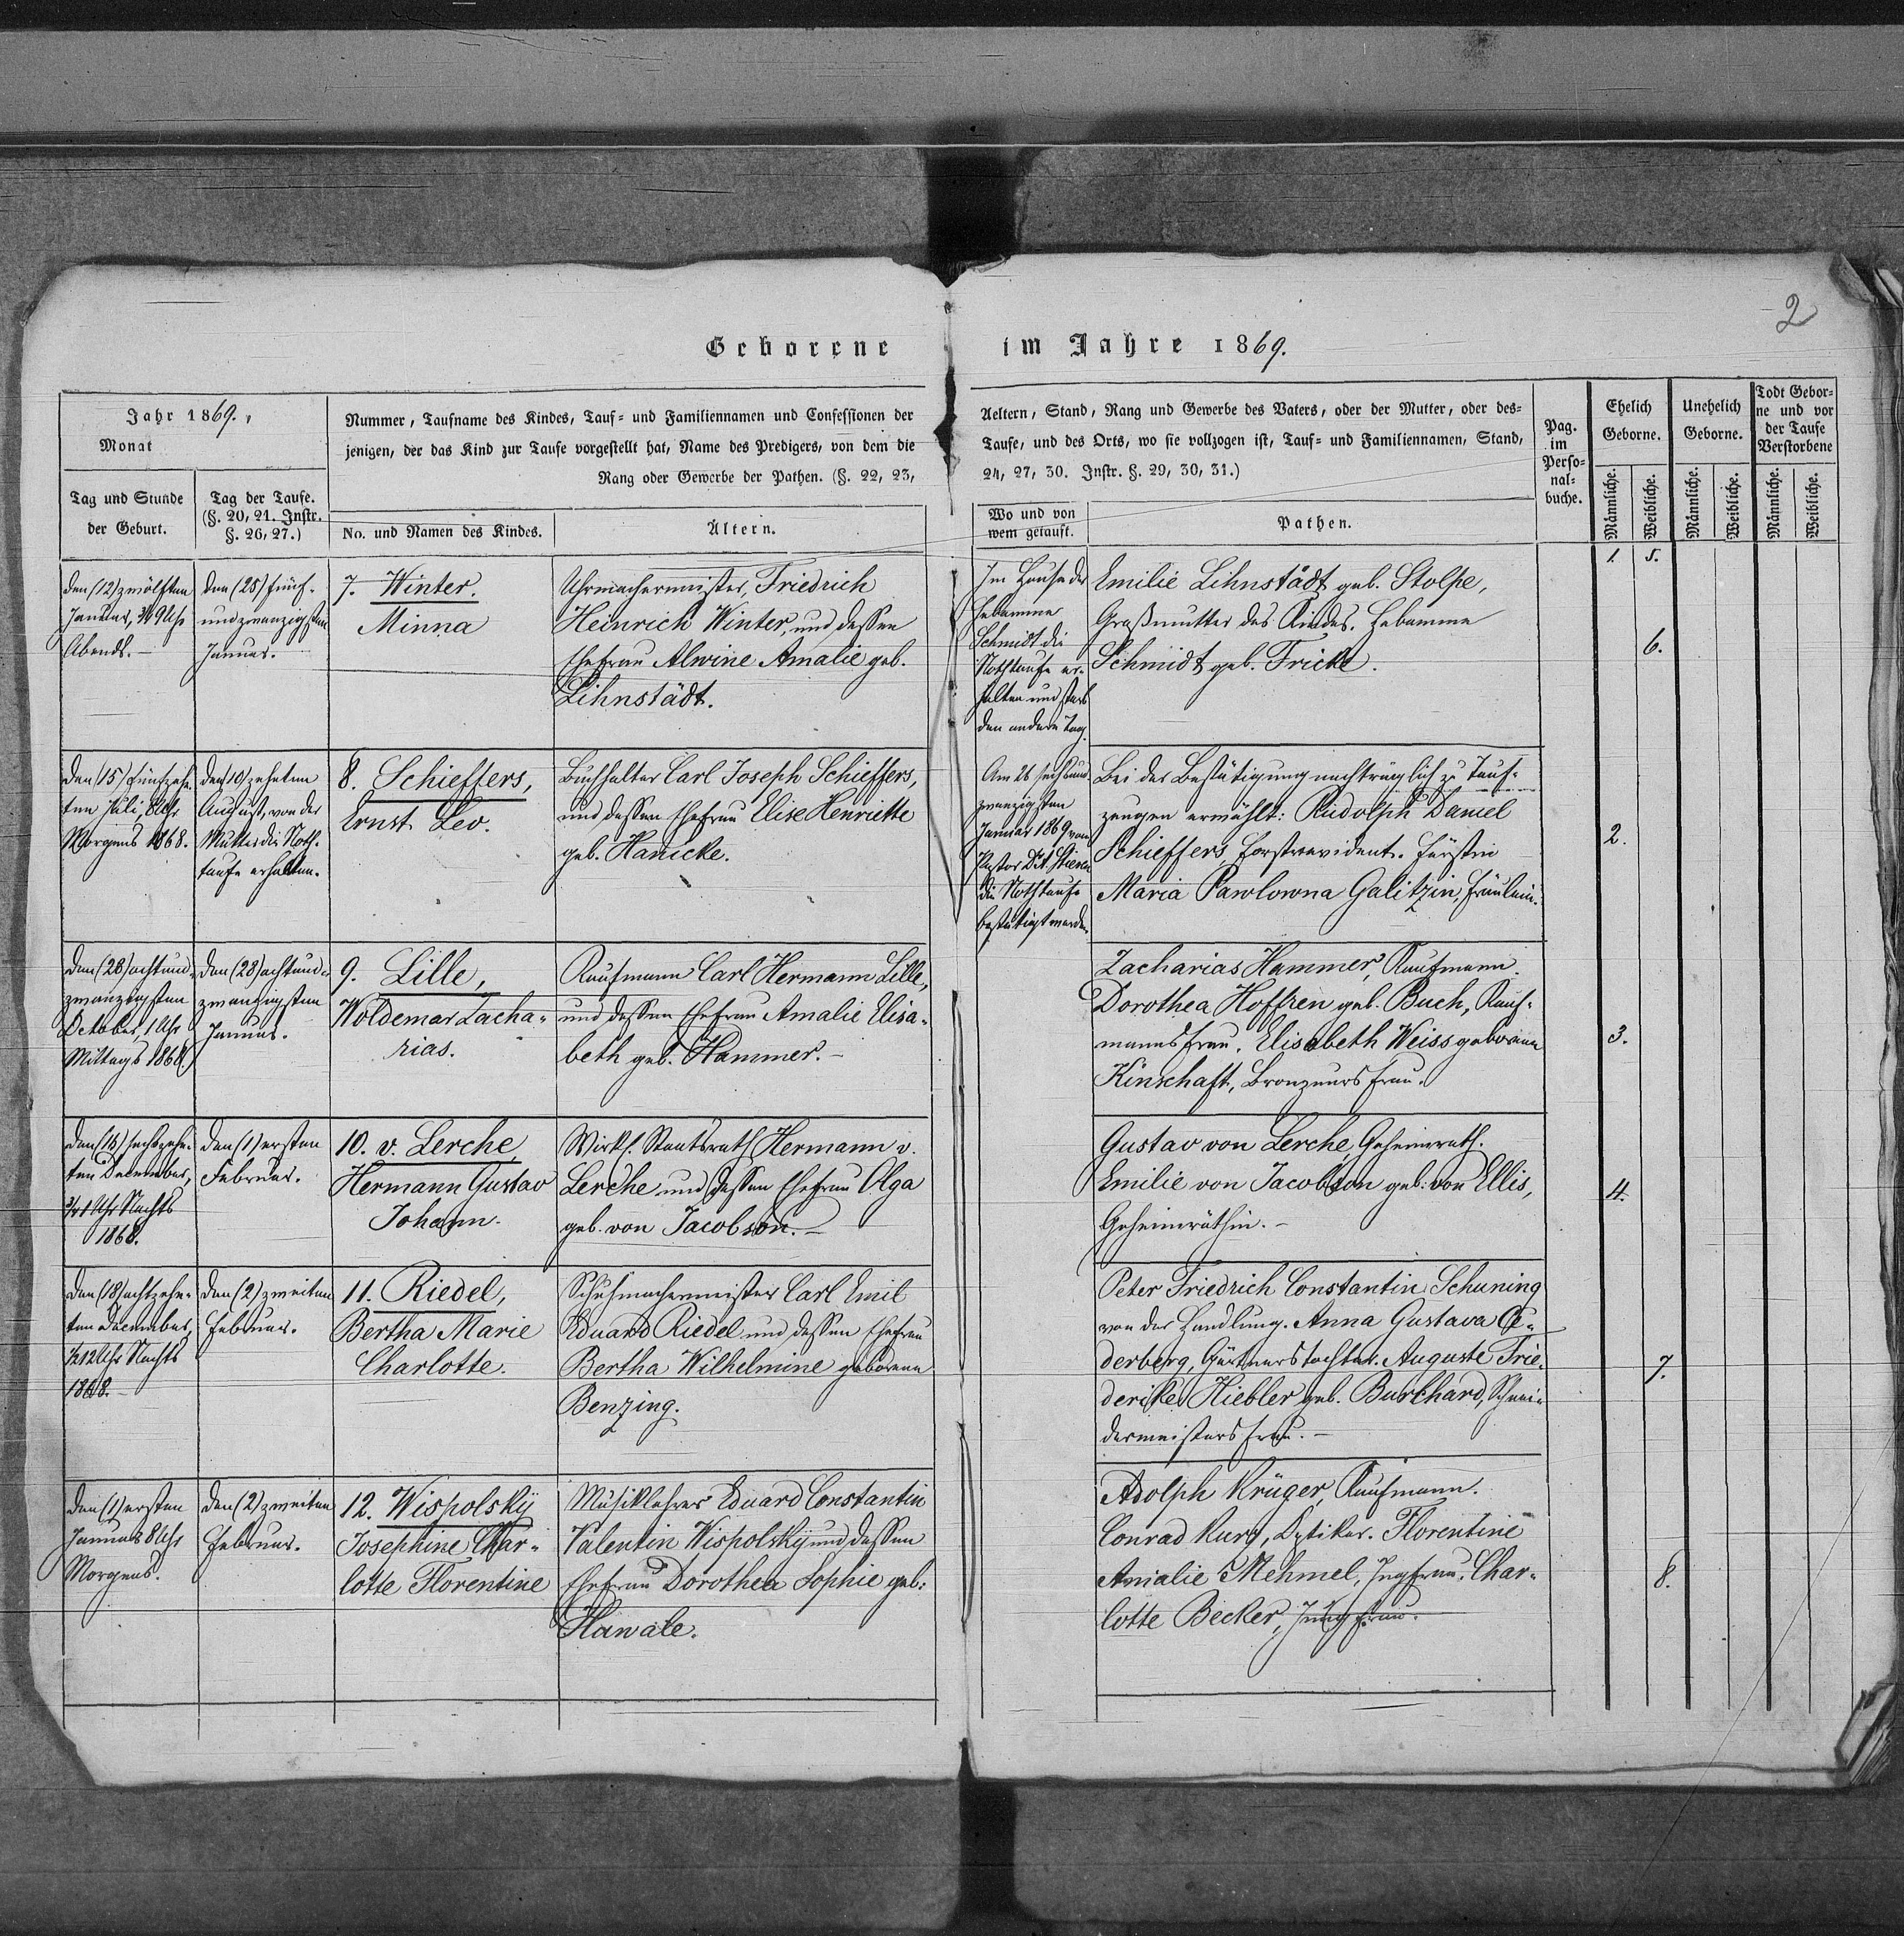 2
Geborene im Jahre 1869.
Jahr 1869.
Monat
Tag und Stunde
der Geburt.
Tag der Taufe.
(§. 20, 21. Instr.
§. 26, 27.)
Nummer, Taufname des Kindes, Tauf- und Familiennamen und Confessionen der
jenigen, der das Kind zur Taufe vorgestellt hat, Name des Predigers, von dem die
Rang oder Gewerbe der Pathen. (§. 22, 23,
No. und Namen des Kindes.
Ältern.
Aeltern, Stand, Rang und Gewerbe des Vaters, oder der Mutter, oder des-
Taufe, und des Orts, wo sie vollzogen ist, Tauf- und Familiennamen, Stand,
24, 27, 30. Instr. §. 29, 30, 31.)
Wo und von
wem getauft.
Pathen.
Pag.
im
Perso-
nal-
buche.
Ehelich
Geborne.
Männliche.
Weibliche.
Unehelich
Geborne.
Männliche.
Weibliche.
Todt Gebor-
ne und vor
der Taufe
Verstorbene
Männliche.
Weibliche.
1. 5.
den (12) zwölften
Januar, 3/4 9 Uhr
Abends.
den (25) fünf-
undzwanzigsten
Januar.
7. Winter.
Minna
Uhrmachermeister, Friedrich
Heinrich Winter, und dessen
Ehefrau Alwine Amalie geb.
Lihnstädt.
Im Hause der
Hebamme
Schmidt die
Nothtaufe er-
halten und starb
den andern Tag.
Emilie Lihnstädt geb. Stolpe,
Großmutter des Kindes. Hebamme
Schmidt geb. Fricke.
6.
den (15) fünfzehn-
ten Juli, 8 Uhr
Morgens 1868.
den (10) zehnten
August, von der
Mutter die Noth-
taufe erhalten.
8. Schieffers,
Ernst Leo.
Buchhalter Carl Joseph Schieffers,
und dessen Ehefrau Elise Henriette
geb. Hanicke.
Am 26 sechsund-
zwanzigsten
Januar 1869 vom
Pastor
die Nothtaufe
bestätigt worden.
Bei der Bestätigung nachträglich zu Tauf-
zeugen erwählt: Rudolph Daniel
Schieffers, Forstrevident. Fürstin
Maria Pawlowna Galitzin, Fräulein.
2.
den (28) achtund-
zwanzigsten
October, 1 Uhr
Mittags 1868.
den (28) achtund-
zwanzigsten
Januar.
9. Lille,
Woldemar Zacha-
rias.
Kaufmann Carl Hermann Lille,
und dessen Ehefrau Amalie Elisa-
beth geb. Hammer.
Zacharias Hammer, Kaufmann.
Dorothea Hoffren geb. Buch, Kauf-
manns Frau. Elisabeth Weiss geborene
Kinschaft, Bronzeurs Frau.
3.
den (16) sechszehn-
ten December,
3/4 1 Uhr Nachts
1868.
den (1) ersten
Februar.
10. v. Lerche,
Hermann Gustav
Johann.
Wirkl. Staatsrath Hermann v.
Lerche und dessen Ehefrau Olga
geb. von Jacobson.
Gustav von Lerche, Geheimrath.
Emilie von Jacobson geb. von Ellis,
Geheimräthin.
4.
den (18) achtzehn-
ten December,
1/2 12 Uhr Nachts
1868.
den (2) zweiten
Februar.
11. Riedel,
Bertha Marie
Charlotte.
Schuhmachermeister Carl Emil
Eduard Riedel und dessen Ehefrau
Bertha Wilhelmine geborene
Benzing.
Peter Friedrich Constantin Schuning
von der Handlung. Anna Gustava Ce-
derberg, Gärtnerstochter. Auguste Frie-
derike Hiebler geb. Burchard, Schnei-
dermeisters Frau.
7.
den (1) ersten
Januar 8 Uhr
Morgens.
den (2) zweiten
Februar.
12. Wispolsky
Josephine Char-
lotte Florentine
Musiklehrer Eduard Constantin
Valentin Wispolsky und dessen
Ehefrau Dorothea Sophie geb:
Hawale.
Adolph Krüger, Kaufmann.
Conrad Kurz, Optiker. Florentine
Amalie Mehmel, Jungfrau. Char-
lotte Becker, Jungfrau.
8.